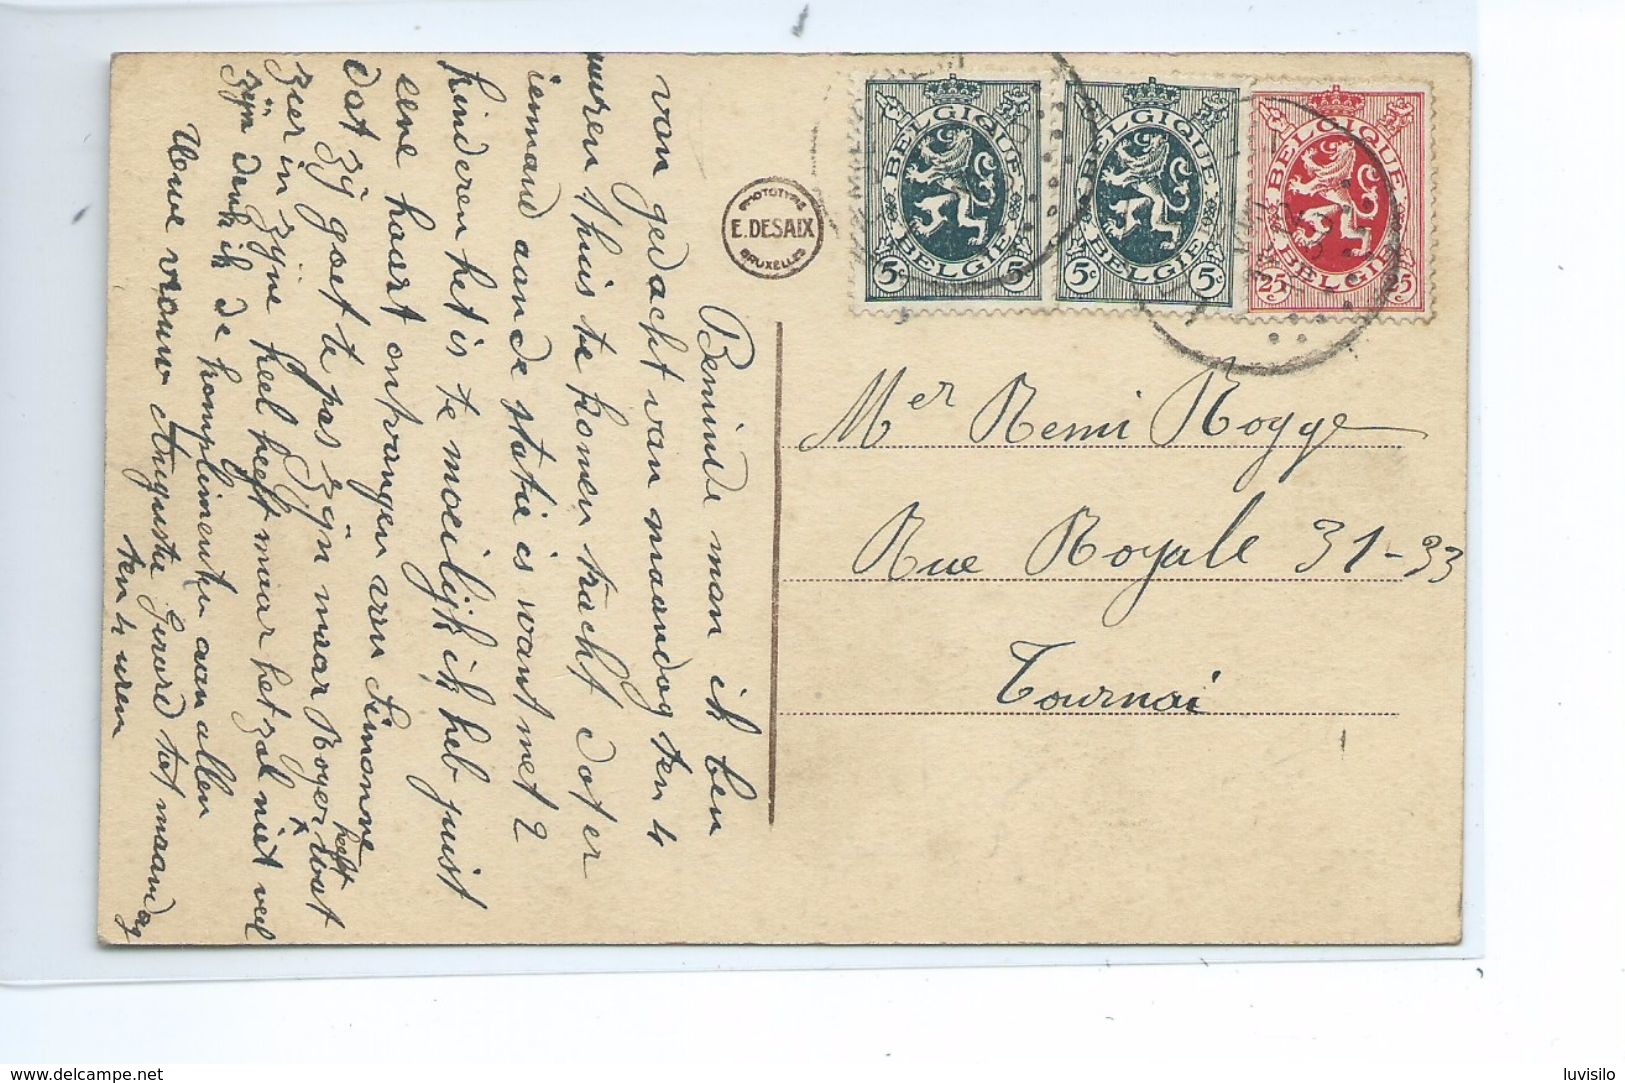 Beminde man ik ben
van gedacht van maandag ten 4
uuren thuis te komen tracht dat er
iemand aan de statie is want met 2
kinderen het is te moeilijk ik heb juist
eene kaart ontvangen van Simonne
dat zij goet te pas zijn maar Roger heeft wat
zeer in zijne keel heeft maar het zal niet veel
zijn denk ik de komplimenten aan allen
Uwe vrouw Auguste tot maandag
ten 4 uren
PHOTOTYPIE
E. DESAIX
BRUXELLES
BELGIQUE
BELGIË
5c 5c
BELGIQUE
BELGIË
5c 5c
BELGIQUE
BELGIË
25c 25c
Mer Remi Rogge
Rue Royale 31-33
Tournai
www.delcampe.net
luvisilo